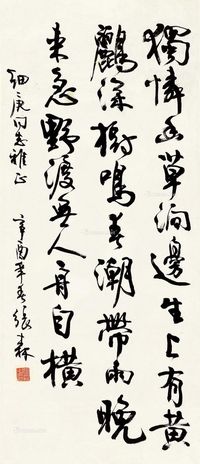 獨憐幽草澗邊生上有黃
鸝深樹鳴春潮帶雨晚
來急野渡無人舟自橫
細庚同志雅正 辛酉年春張森